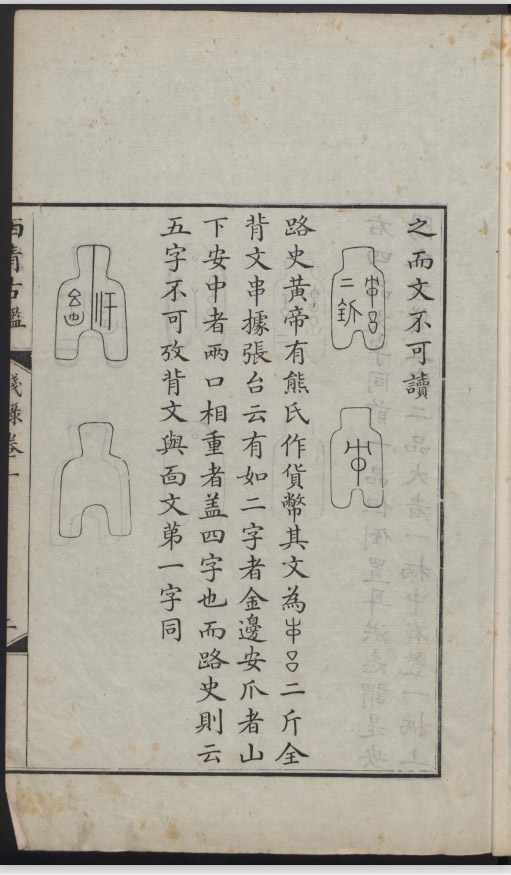 之而文不可讀
路史黃帝有熊氏作貨幣其文為二斤全
背文串據張台云有如二字者金邊安爪者山
下安中者兩口相重者盖四字也而路史則云
五字不可攷背文與面文第一字同
西清古鑑
錢錄卷